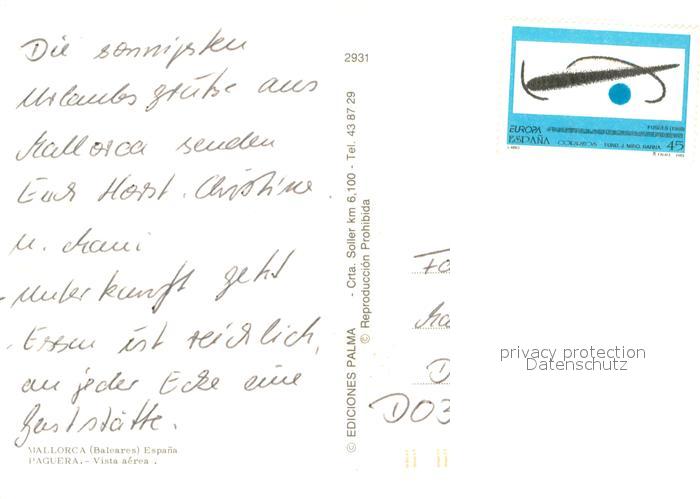 Die sonnigsten
Urlaubsgrüße aus
Mallorca senden
Euch Horst. Christine.
u. Mani
Unterkunft geht
Essen ist reichlich,
an jeder Ecke eine
Gaststätte.
MALLORCA (Baleares) España
PAGUERA.- Vista aérea .
2931
© EDICIONES PALMA - Crta. Soller km 6,100 - Tel. 43 87 29
© Reproducción Prohibida
EUROPA
ESPAÑA
45
Fa
D
D03
privacy protection
Datenschutz